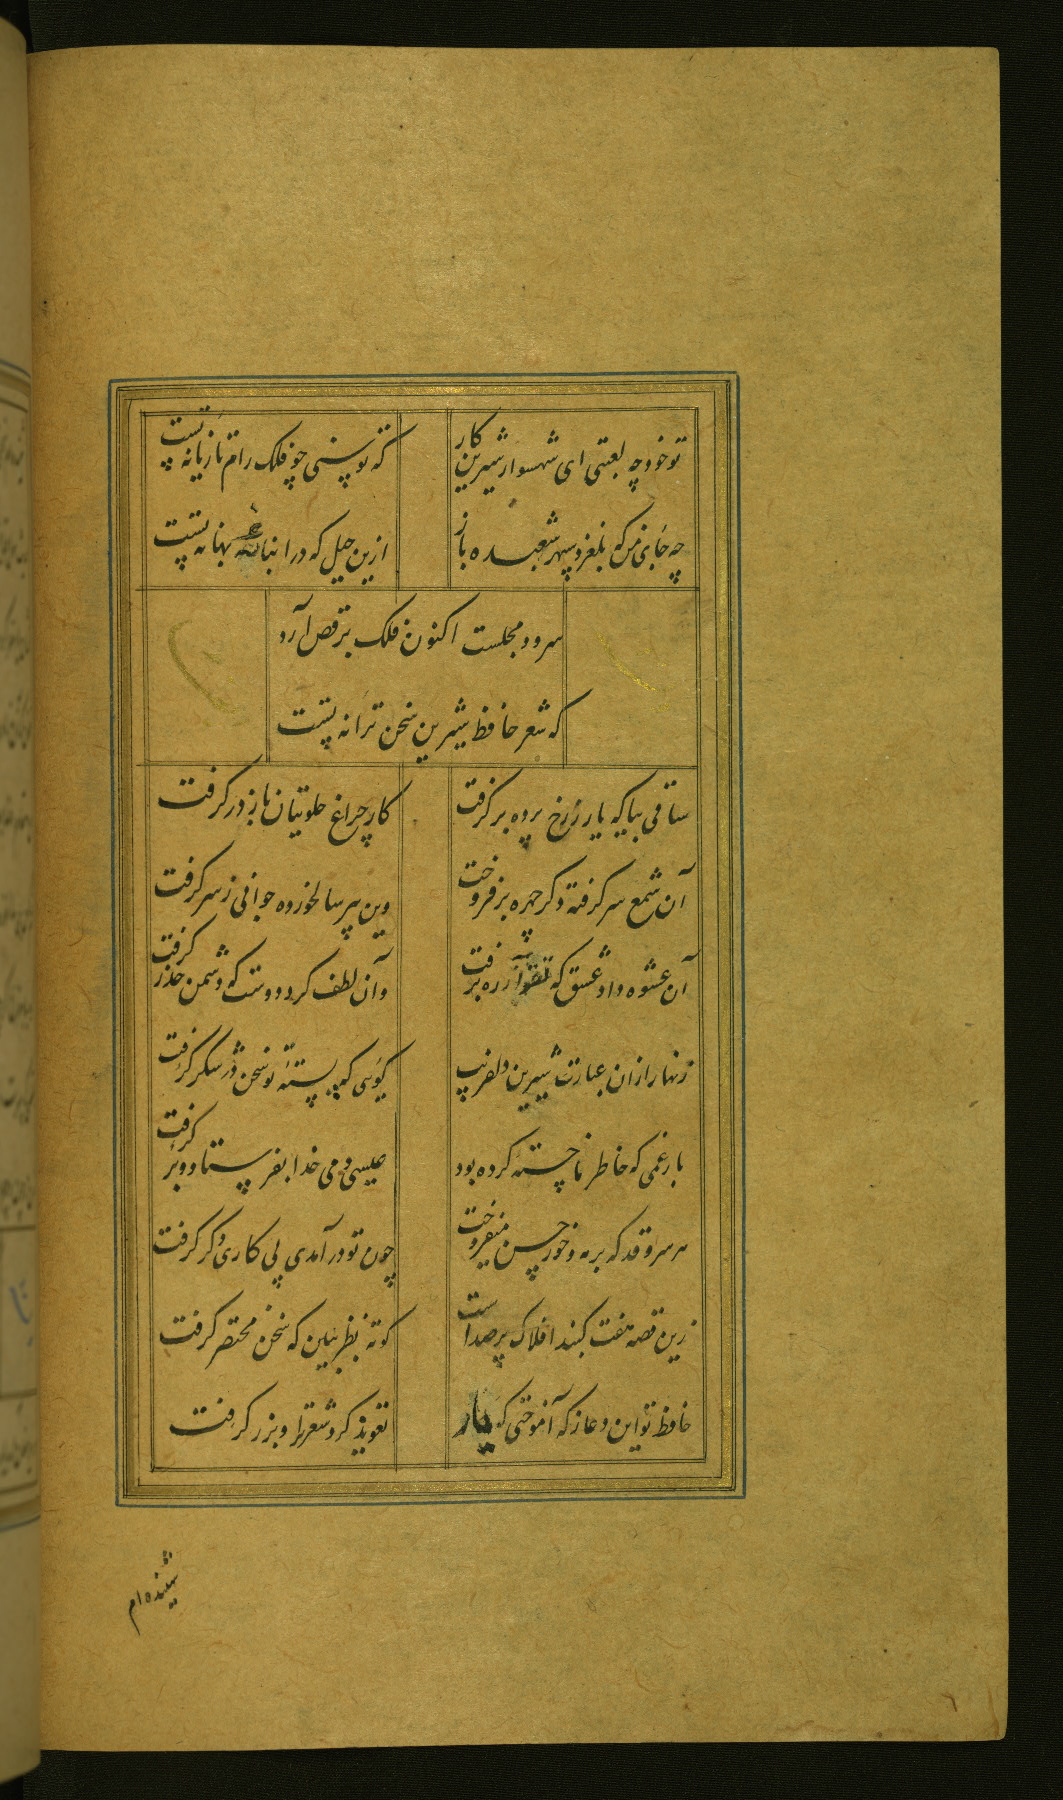 تو خود چه لعبتی ای شهسوار شیرین کار
که توسنی چو فلک رام تازیانه تست
چه جای من که بلغزد سپهر شعبده باز
ازین حیل که در انبانه بهانه تست
سرود مجلست اکنون فلک برقص آرد
که شعر حافظ شیرین سخن ترانه تست
ساقی بیا که یار ز رخ پرده برگرفت
کار چراغ خلوتیان باز در گرفت
آن شمع سر گرفته دگر چهره برفروخت
وین پیر سالخورده جوانی ز سر گرفت
آن عشوه داد عشق که تقوی ز ره برفت
وآن لطف کرد دوست که دشمن حذر گرفت
زنهار ازان عبارت شیرین دلفریب
گوئی که پسته تو سخن در شکر گرفت
بار غمی که خاطر ما خسته کرده بود
عیسی دمی خدا بفرستاد و بر گرفت
هر سرو قد که بر مه و خور حسن میفروخت
چون تو در آمدی پی کاری دگر گرفت
زین قصه هفت گنبد افلاک پر صداست
کوته نظر ببین که سخن مختصر گرفت
حافظ تو این دعا ز که آموختی که یار
تعویذ کرد شعر ترا و بزر گرفت
شنیده ام